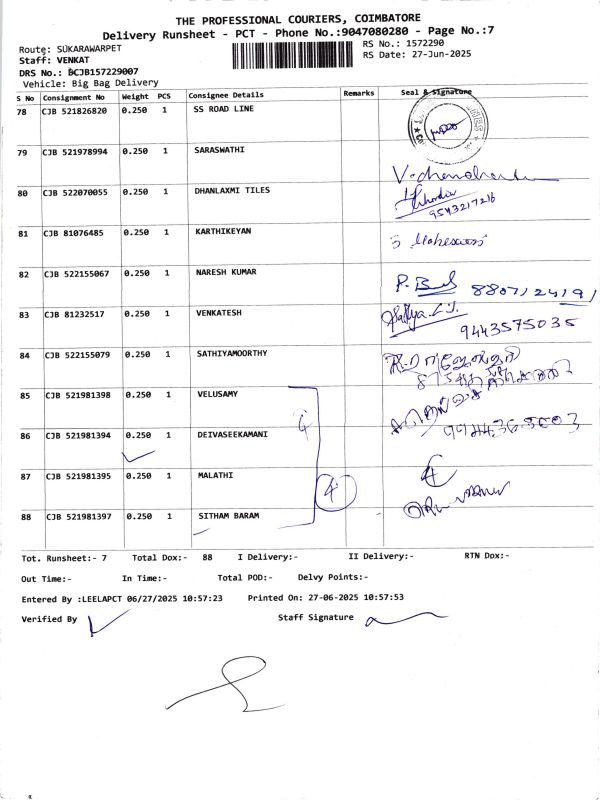 THE PROFESSIONAL COURIERS, COIMBATORE
Delivery Runsheet - PCT - Phone No.:9047080280 - Page No.:7
Route: SUKARAWARPET
RS No.: 1572290
Staff: VENKAT
RS Date: 27-Jun-2025
DRS No.: BCJB157229007
Vehicle: Big Bag Delivery
S No Consignment No Weight PCS Consignee Details Remarks Seal & Signature
78 CJB 521826820 0.250 1 SS ROAD LINE
79 CJB 521978994 0.250 1 SARASWATHI
80 CJB 522070055 0.250 1 DHANLAXMI TILES
9543217216
81 CJB 81076485 0.250 1 KARTHIKEYAN
82 CJB 522155067 0.250 1 NARESH KUMAR
83 CJB 81232517 0.250 1 VENKATESH
9443575035
84 CJB 522155079 0.250 1 SATHIYAMOORTHY
85 CJB 521981398 0.250 1 VELUSAMY
86 CJB 521981394 0.250 1 DEIVASEEKAMANI
87 CJB 521981395 0.250 1 MALATHI
4
88 CJB 521981397 0.250 1 SITHAM BARAM
Tot. Runsheet:- 7 Total Dox:- 88 I Delivery:- II Delivery:- RTN Dox:-
Out Time:- In Time:- Total POD:- Delvy Points:-
Entered By :LEELAPCT 06/27/2025 10:57:23 Printed On: 27-06-2025 10:57:53
Verified By Staff Signature